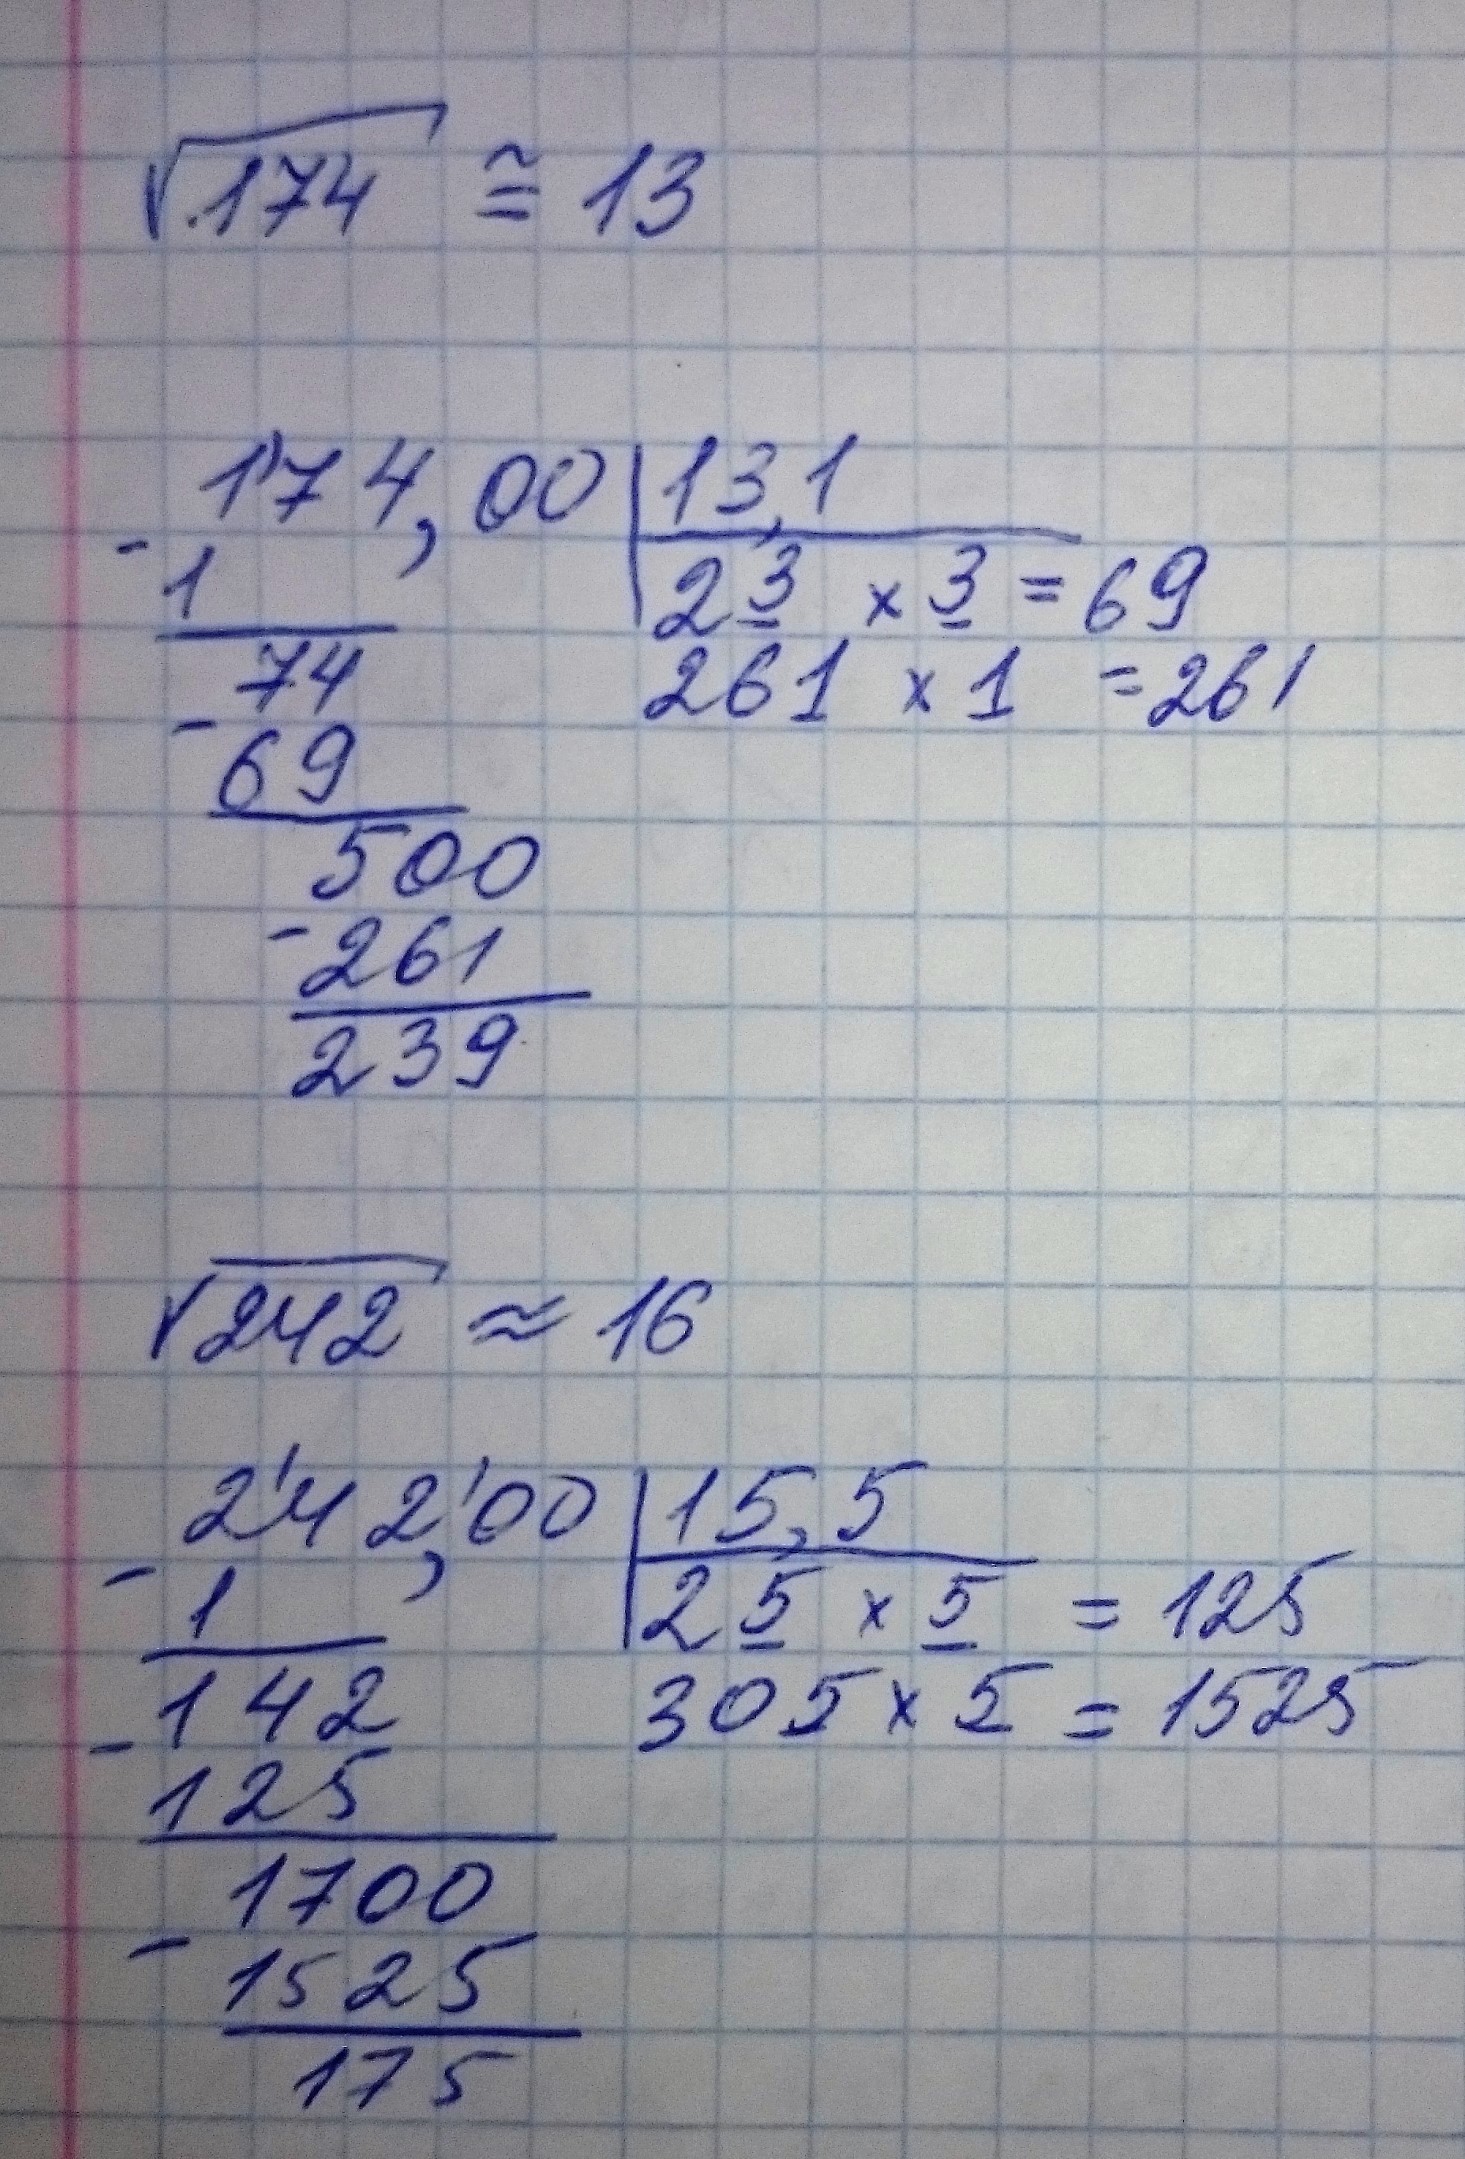 √174 ≅ 13
1'74,00 | 13,1
- 1
23 × 3 = 69
74
261 × 1 = 261
- 69
500
- 261
239
√242 ≈ 16
2'42,'00 | 15,5
- 1
25 × 5 = 125
142
305 × 5 = 1525
- 125
1700
- 1525
175